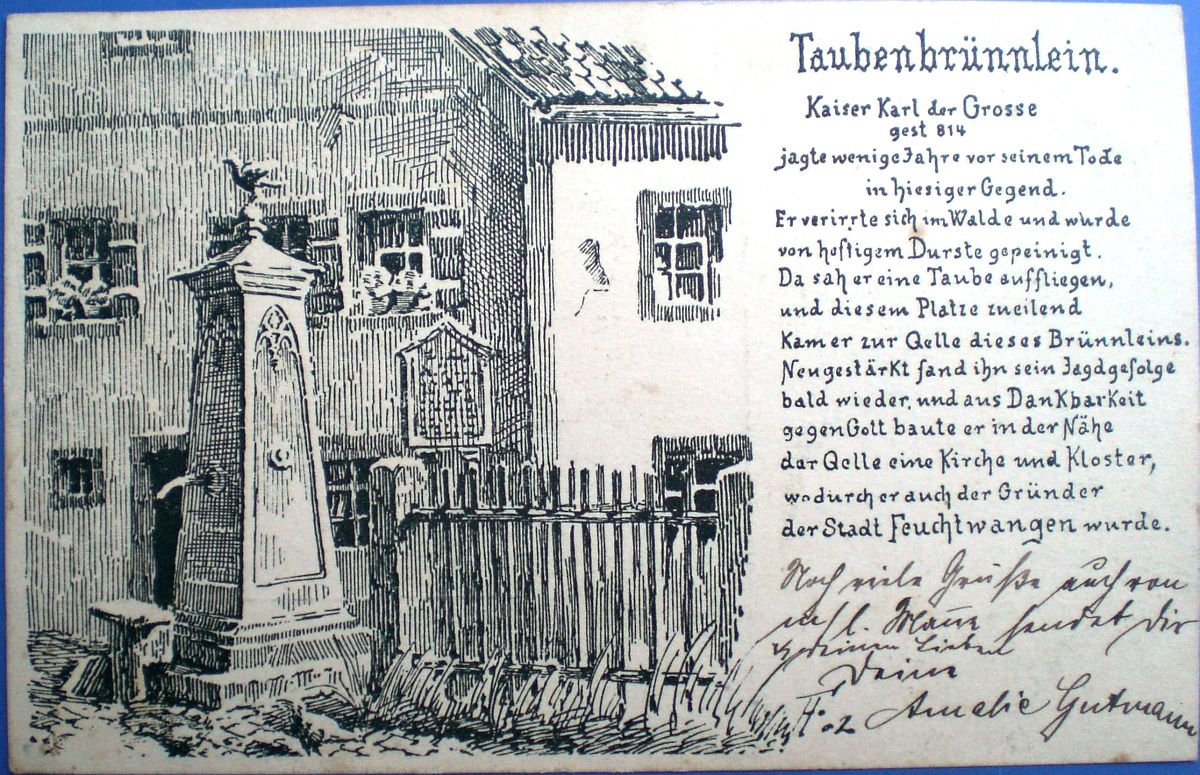 Taubenbrünnlein.
Kaiser Karl der Grosse
gest 814
jagte wenige Jahre vor seinem Tode
in hiesiger Gegend.
Er verirrte sich im Walde und wurde
von heftigem Durste gepeinigt.
Da sah er eine Taube auffliegen,
und diesem Platze zueilend
Kam er zur Qelle dieses Brünnleins.
Neugestärkt fand ihn sein Jagdgefolge
bald wieder, und aus Dankbarkeit
gegen Gott baute er in der Nähe
dar Qelle eine Kirche und Kloster,
wodurch er auch der Gründer
der Stadt Feuchtwangen wurde.
Noch viele Grüße auch von
m. l. Mann sendet Dir
u. deinen Lieben
Deine
Amalie Gutmann